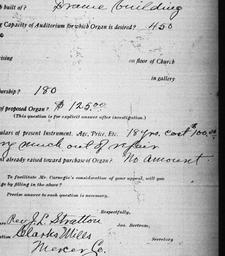 h built of? Frame building
g Capacity of Auditorium for which Organ is desired? 450
ising on floor of Church
in gallery
bership? 180
of proposed Organ? $ 125.00
(This question is for explicit answer after investigation.)
ulars of present Instrument. Age, Price, Etc. 18 yrs. cost $100.00
ry much out of repair
nt already raised toward purchase of Organ? No Amount
To facilitate Mr. Carnegie's consideration of your appeal, will you
ge by filling in the above?
Precise answer to each question is necessary.
Respectfully,
Jas. Bertram,
Secretary
Rev J. L. Stratton
Clarks Mills
Mercer Co.